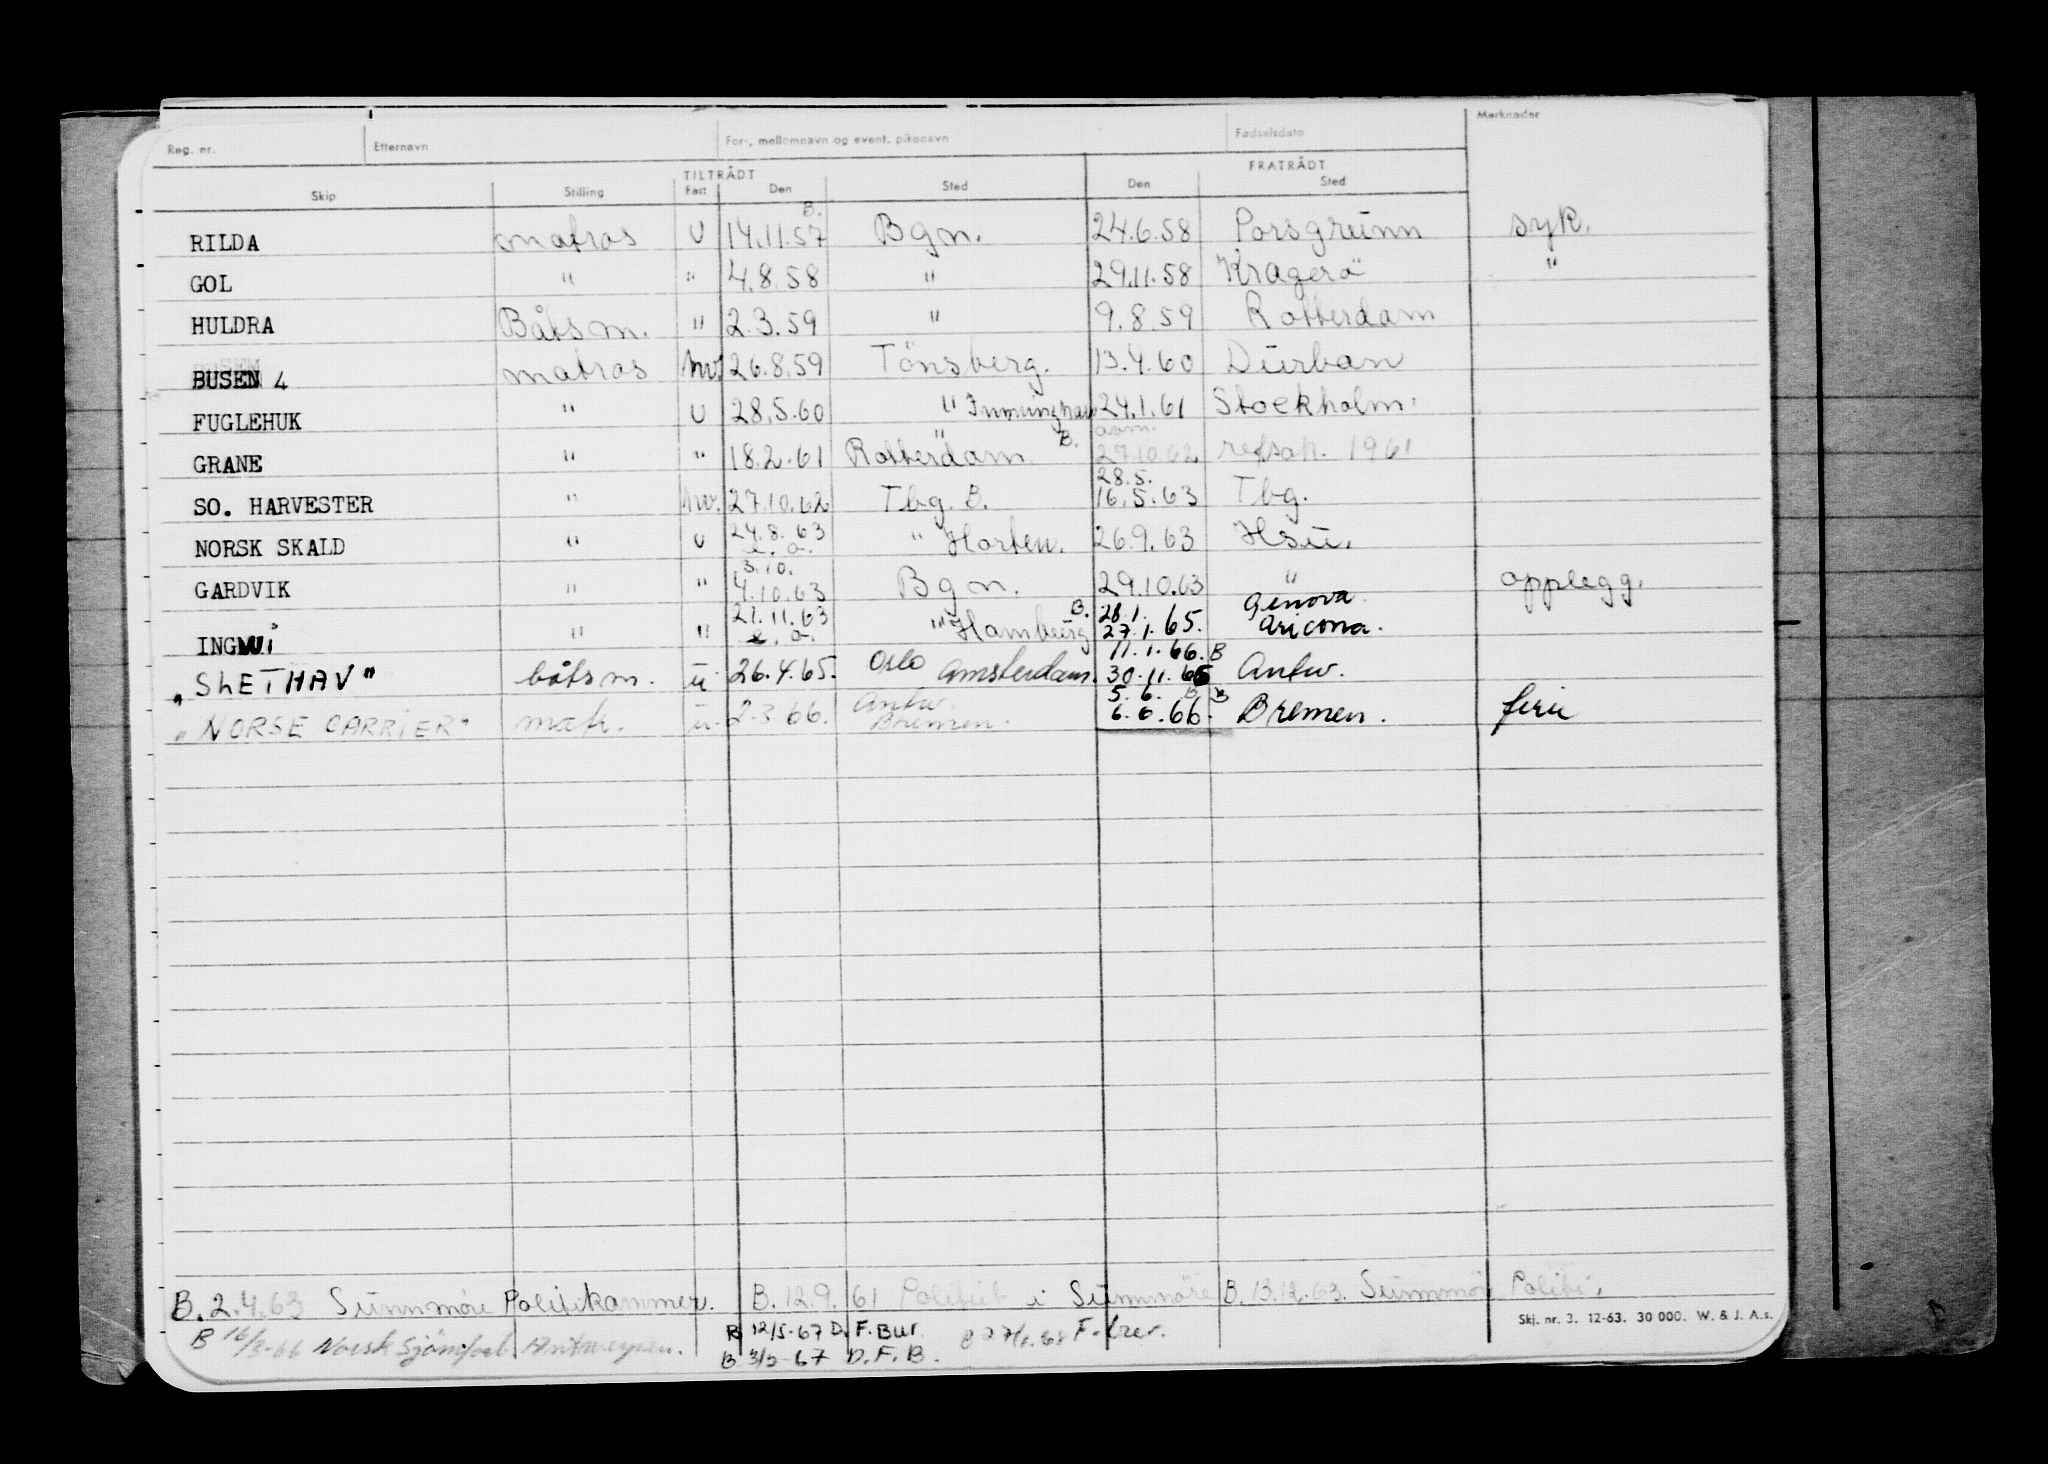 Reg. nr. Etternavn For-, mellomnavn og event. pikenavn Fødselsdato Merknader
TILTRÅDT FRATRÅDT
Skip Stilling Fart Den Sted Den Sted
RILDA matros U 14.11.57 B. Bgn. 24.6.58 Porsgrunn syk.
GOL " " 4.8.58 " 29.11.58 Kragerö "
HULDRA Båtsm. " 2.3.59 " 9.8.59 Rotterdam
BUSEN 4 matros hv. 26.8.59 Tönsberg. 13.4.60 Durban
FUGLEHUK " U 28.5.60 " 24.1.61 Stockholm.
GRANE " " 18.2.61 Rotterdam. B. 27.10.62 1961
28.5.
SO. HARVESTER " hv. 27.10.62 Tbg. B. 16.5.63 Tbg.
24.8.63
NORSK SKALD " U " Horten. 26.9.63 Hsu.
3.10.
GARDVIK " " 4.10.63 Bgn. 29.10.63 " opplegg.
21.11.63 B. 28.1. Genova.
" " " Hamburg 27.1.65.
11.1.66. B
"SLETHAV" båtsm. u 26.4.65. Oslo Amsterdam. 30.11.65 Antw.
5.6. B
"NORSE CARRIER" matr. u. 2.3.66. Antw. Bremen. 6.6.66. Bremen. ferie
B. 2.4.63 Sunnmöre Politikammer. B. 12.9.61 Politiet i Sunnmöre B. 13.12.63. Sunnmöre Politi.
Skj. nr. 3. 12-63. 30 000. W. & J. A.s.
B 16/3-66 Norsk Sjömforb. Antwerpen. B 12/5-67 D. F. Bur.
B 3/2-67 D. F. B.